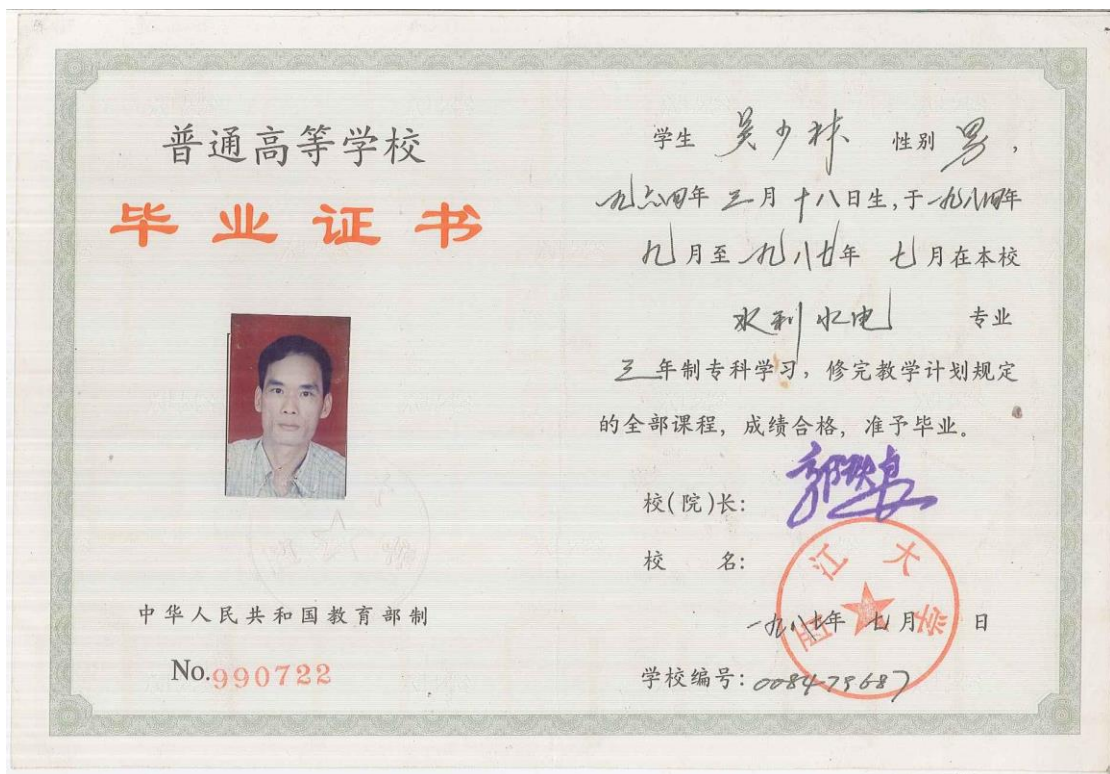 普通高等学校
毕业证书
中华人民共和国教育部制
No.990722
学生 吴少林 性别 男，
一九六四年 三月 十八日生，于一九八四年
九月至一九八七年 七月在本校
水利水电 专业
三年制专科学习，修完教学计划规定
的全部课程，成绩合格，准予毕业。
校(院)长：
校 名：
江大学
一九八七年 七月 日
学校编号：008479687